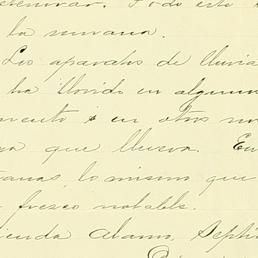 Todo esto
la semana.
Los aparatos de lluvia
ha llovido en algunos
en otros no
que llueva. En
lo mismo que
fresco notable.
Alamo, Septi